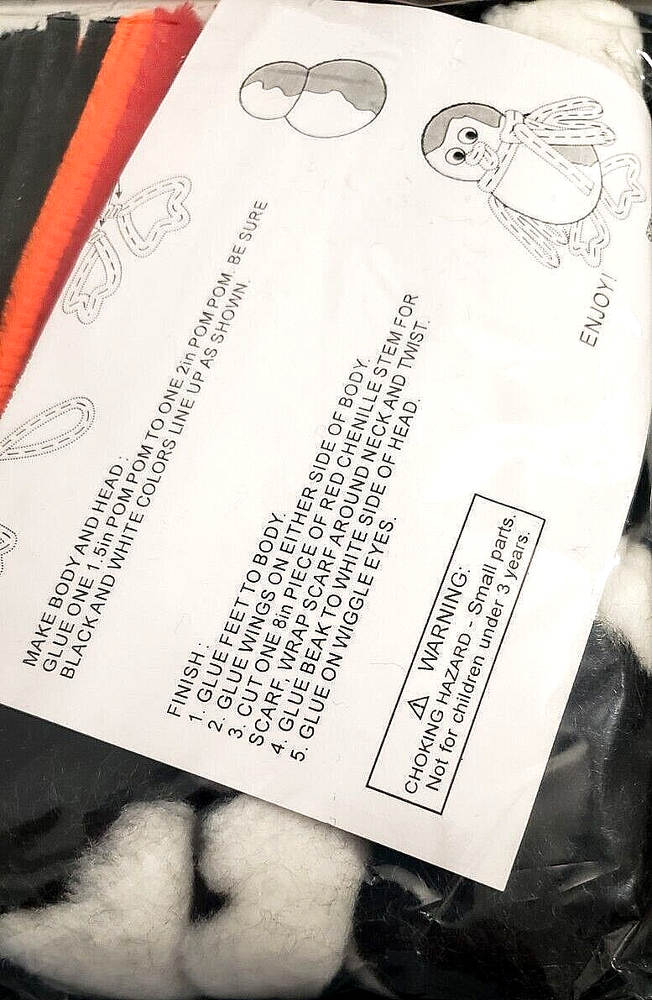 MAKE BODY AND HEAD:
GLUE ONE 1.5in POM POM TO ONE 2in POM POM. BE SURE
BLACK AND WHITE COLORS LINE UP AS SHOWN.
FINISH:
1. GLUE FEET TO BODY.
2. GLUE WINGS ON EITHER SIDE OF BODY.
3. CUT ONE 8in PIECE OF RED CHENILLE STEM FOR
SCARF, WRAP SCARF AROUND NECK AND TWIST.
4. GLUE BEAK TO WHITE SIDE OF HEAD.
5. GLUE ON WIGGLE EYES.
ENJOY!
⚠ WARNING:
CHOKING HAZARD - Small parts.
Not for children under 3 years.